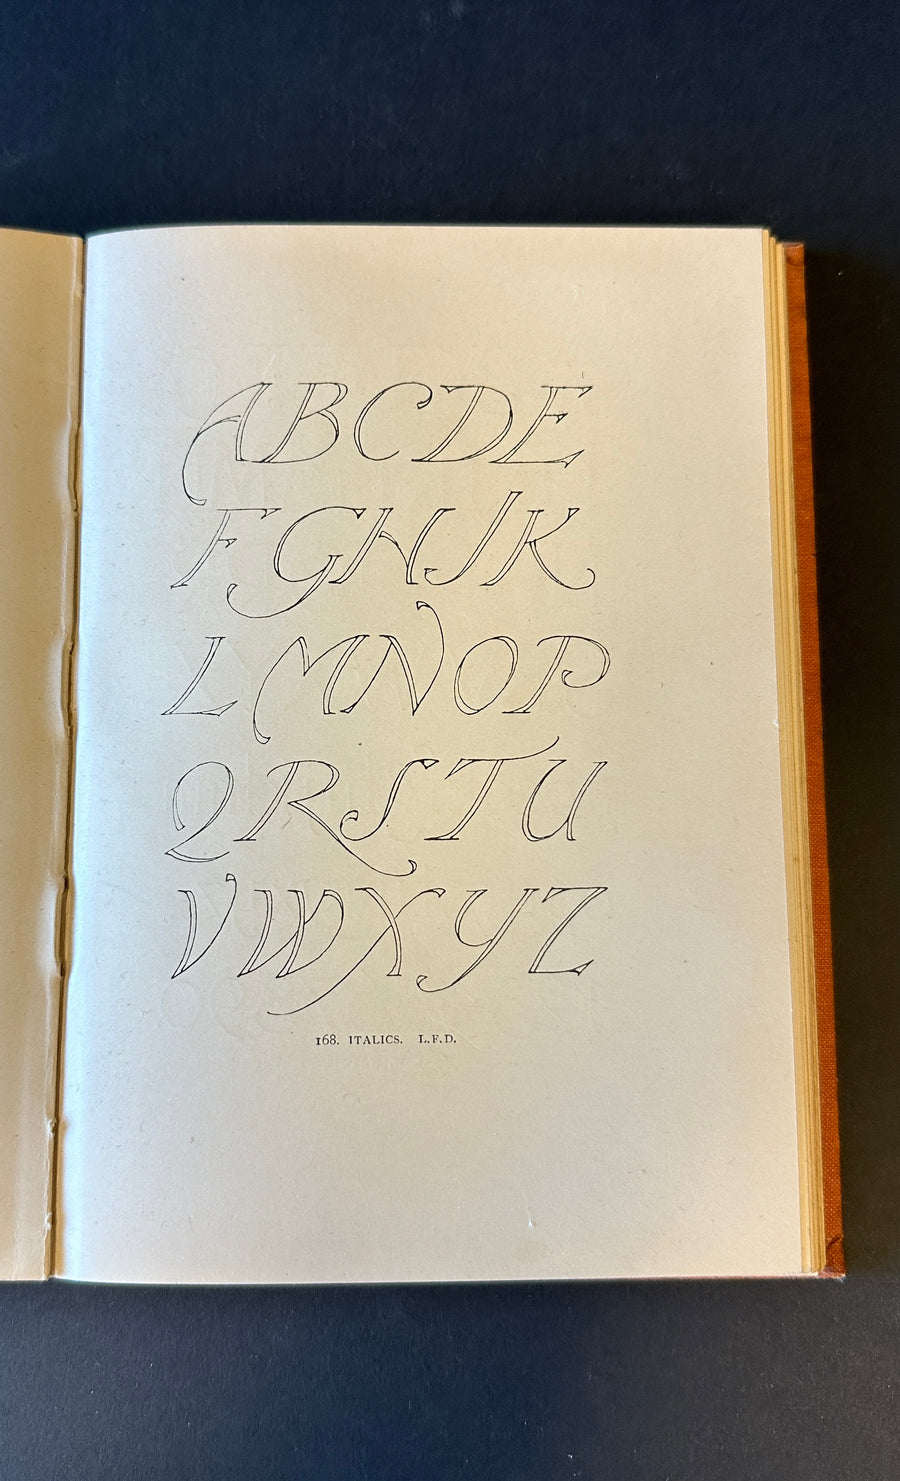 ABCDE
FGHJK
LMNOP
QRSTU
VWXYZ
168. ITALICS. L.F.D.